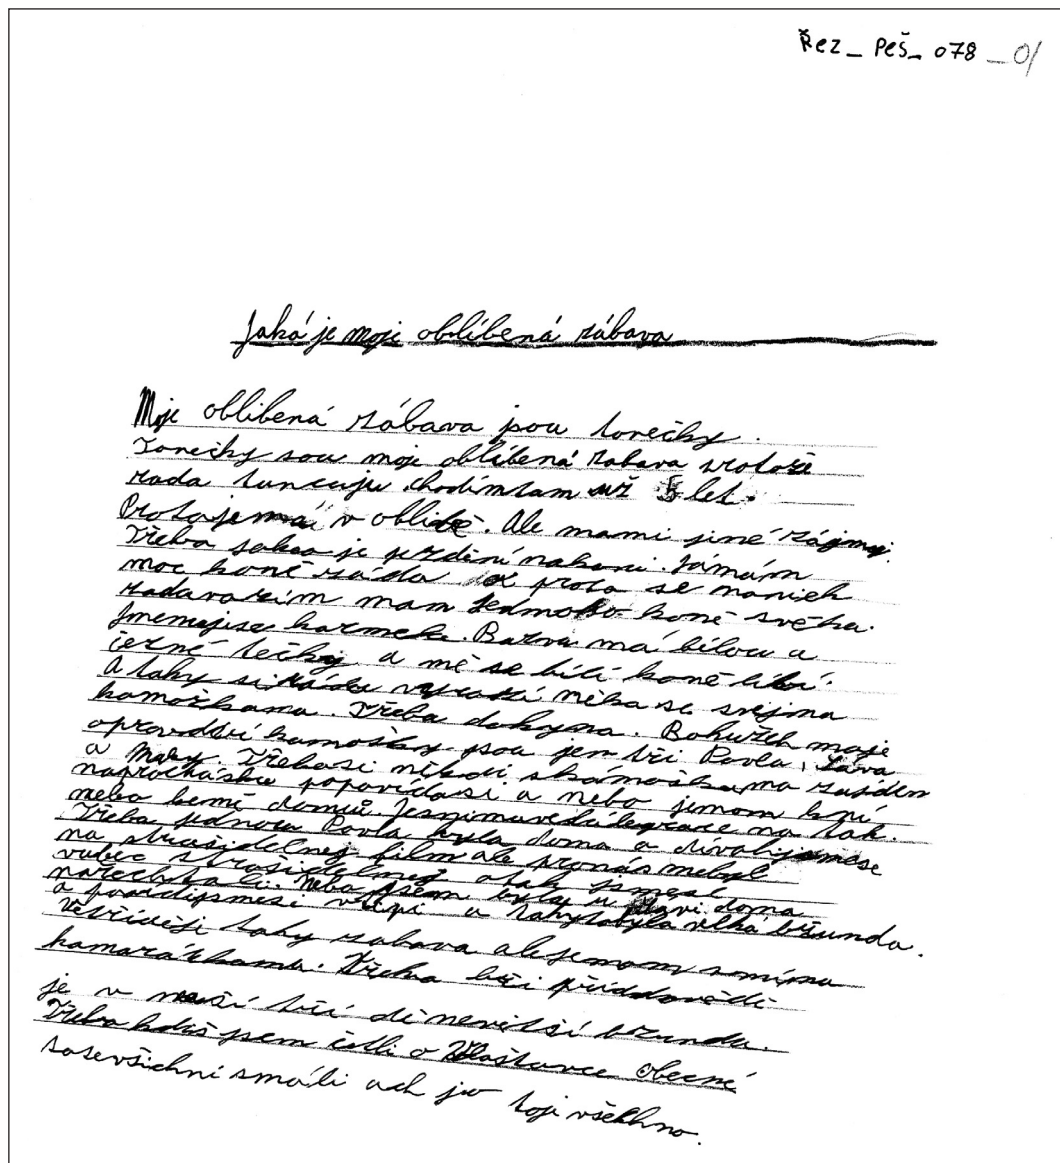 Řez_Peš_078_01
Jaká je moje oblíbená zábava
Moje oblibená zábava jsou tonečky.
Tonečky sou moje oblíbená zabava protože
rada tuncuju chodimtam už 5 let.
Protojemái v oblibě. Ale mami jiné zájmy.
Třeba jako je ježdění nakoni. Jámám
moc koně ráda a proto se manich
radavozim mam jednoho koně světra.
Jmenujise karmela. Barvu má bílou a
černé tečky a mě se bílí koně líbí.
A taky si rádu vyrazí něka se svejma
kamoškama. Třeba dokyna. Bohužel moje
opravdoví kamošky jsou jen tři Pavla, Sáva
a Mary. Třebasi někdi skamoškama zajdem
naprocházku popovidasi a nebo jenom
nebo domů. na tak.
Třeba jednou Pavla byla doma a dívalijsmese
na strašidelnej film ale pronás nebyl
vubec strašidelnej atak jsmese
nařechtali. Nebo jsem byly u doma
a pouštijsmesi vtipi a takytobyla velká bžunda.
Ve třídějí taky zabava alejenom smíma
kamarátkama. Třeba při
je v naší tří dě nevitší bžunda.
Třeba kdiš jsem četli o Vlaštovce Obecné
takse všichni smáli ach jo toje všekhno.